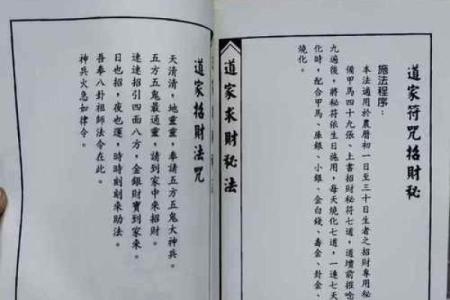 道家符咒招財秘
施法程序：
本法適用於農曆初一日至三十日生者之招財專用秘
備甲馬四十九張、上書招財秘符七道，道壇前推唸
九遍後，將秘符依生日施用，每天燒化七道，一連七天
化時，配合甲馬、庫銀、小銀、金白錢、壽金、卦金
燒化。
道家求財秘法
道家招財法咒
天清清，地靈靈，奉請五方五鬼大神兵。
五方五鬼最通靈，請到家中來招財。
速速招引四面八方，金銀財寶到家來。
日也招，夜也運，時時刻刻來助法。
吾奉八卦祖師法令在此。
神兵火急如律令。